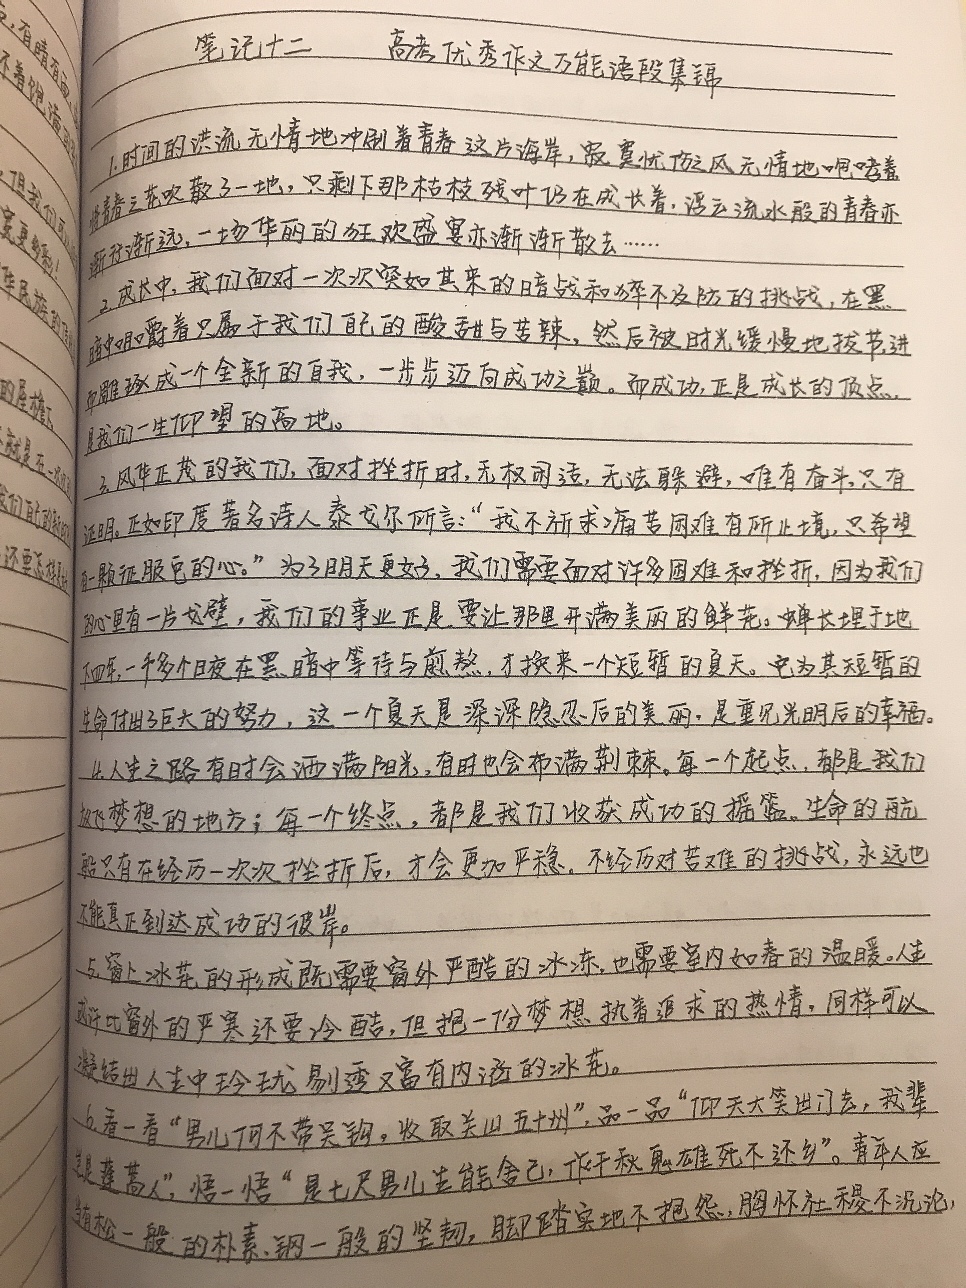 笔记十二 高考优秀作文万能语段集锦
1.时间的洪流无情地冲刷着青春这片海岸，寂寞忧伤之风无情地咆哮着
将青春之花吹散了一地，只剩下那枯枝残叶仍在成长着，浮云流水般的青春亦
渐行渐远，一场华丽的狂欢盛宴亦渐渐散去……
2.成长中，我们面对一次次突如其来的暗战和猝不及防的挑战，在黑
暗中咀嚼着只属于我们自己的酸甜与苦辣，然后被时光缓慢地拔节进
而雕琢成一个全新的自我，一步步迈向成功之巅。而成功，正是成长的顶点，
是我们一生仰望的高地。
3.风华正茂的我们，面对挫折时，无权闲适，无法躲避，唯有奋斗，只有
证明。正如印度著名诗人泰戈尔所言：“我不祈求痛苦困难有所止境，只希望
有一颗征服它的心。”为了明天更好，我们需要面对许多困难和挫折，因为我们
的心里有一片戈壁，我们的事业正是要让那里开满美丽的鲜花。蝉长埋于地
下四年，一千多个日夜在黑暗中等待与煎熬，才换来一个短暂的夏天。它为其短暂的
生命付出了巨大的努力，这一个夏天是深深隐忍后的美丽，是重见光明后的幸福。
4.人生之路有时会洒满阳光，有时也会布满荆棘。每一个起点，都是我们
放飞梦想的地方；每一个终点，都是我们收获成功的摇篮。生命的航
船只有在经历一次次挫折后，才会更加平稳。不经历对苦难的挑战，永远也
不能真正到达成功的彼岸。
5.窗上冰花的形成既需要窗外严酷的冰冻，也需要室内如春的温暖。人生
或许比窗外的严寒还要冷酷，但抱一份梦想执着追求的热情，同样可以
凝结出人生中玲珑剔透又富有内涵的冰花。
6.看一看“男儿何不带吴钩，收取关山五十州”，品一品“仰天大笑出门去，我辈
岂是蓬蒿人”，悟一悟“是七尺男儿生能舍己，作千秋鬼雄死不还乡”。青年人应
当有松一般的朴素、钢一般的坚韧，脚踏实地不抱怨，胸怀社稷不沉沦，